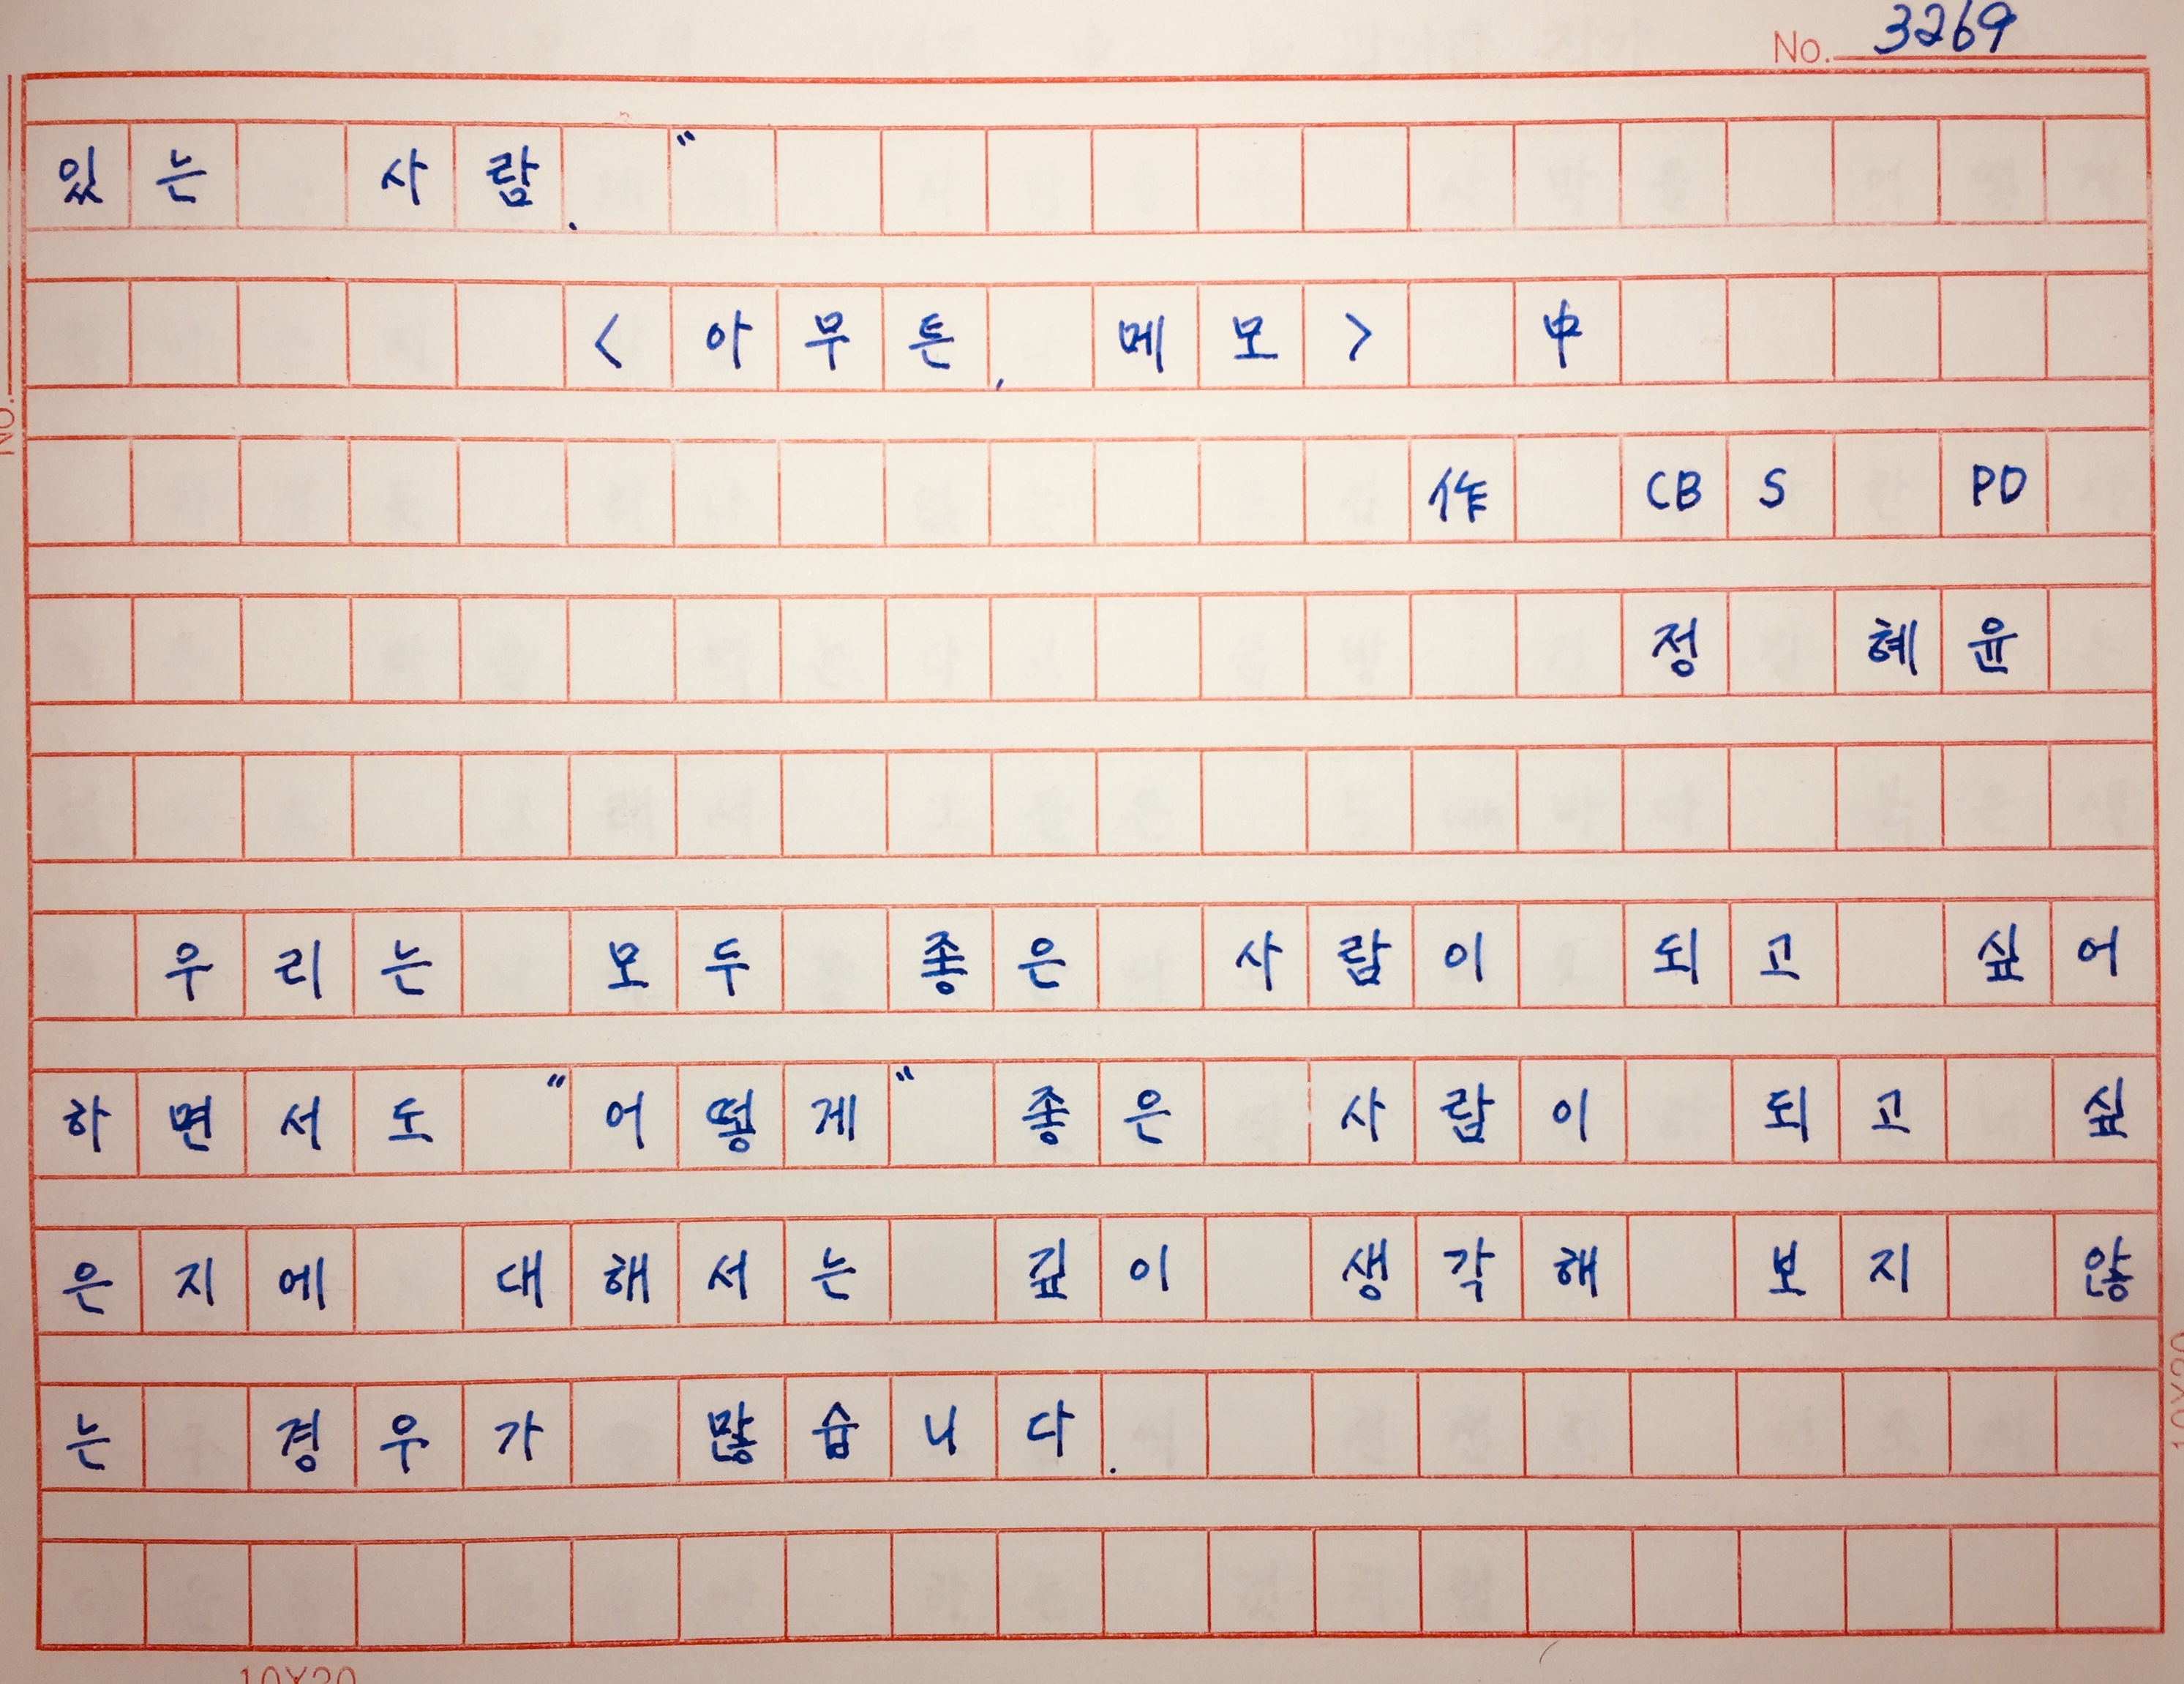 No. 3269
있는 사람."
<아무튼, 메모> 中
作 CBS PD
정 혜윤
우리는 모두 좋은 사람이 되고 싶어
하면서도 "어떻게" 좋은 사람이 되고 싶
은지에 대해서는 깊이 생각해 보지 않
는 경우가 많습니다.
10X20
No.
10X20